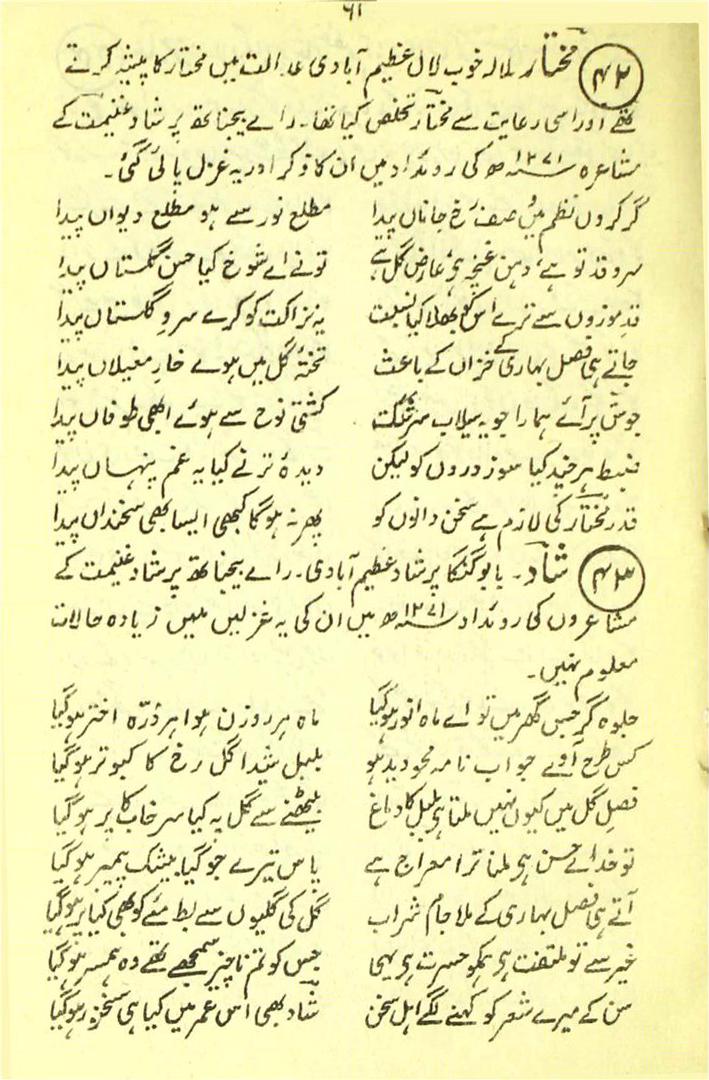 ٦١
(٤٢) مختار۔ لالہ خوب لال عظیم آبادی عدالت میں مختار کا پیشہ کرتے
تھے اور اسی رعایت سے مختار تخلص کیا تھا۔ رائے بیجناتھ پرشاد غنیمت کے
مشاعرہ ۱۲۷۱ھ کی روئداد میں ان کا ذکر اور یہ غزل پائی گئی۔
گر کروں نظم میں صفت رخ جاناں پیدا مطلع نور سے ہو مطلع دیواں پیدا
سرو قد تو ہے، دہن غنچہ ہی، عارض گل ہے تونے اے شوخ کیا حسن گلستاں پیدا
قد موزوں سے ترے اس کو بھلا کیا نسبت یہ نزاکت کو کرے سرو گلستاں پیدا
جاتے ہی فصل بہاری کے خزاں کے باعث تختۂ گل میں ہوے خار مغیلاں پیدا
جوش پر آئے ہمارا جو یہ سیلاب سرشک کشتی نوح سے ہوئے ابھی طوفاں پیدا
ضبط ہر چند کیا سوز دروں کو لیکن دیدۂ تر نے کیا یہ غم پنہاں پیدا
قدر مختار کی لازم ہے سخن دانوں کو پھر نہ ہوگا کبھی ایسا بھی سخنداں پیدا
(٤٣) شاد۔ بابو گنگا پرشاد عظیم آبادی۔ رائے بیجناتھ پرشاد غنیمت کے
مشاعروں کی روئداد ۱۲۷۱ھ میں ان کی یہ غزلیں ملیں زیادہ حالات
معلوم نہیں۔
جلوہ گر جس گھر میں تو اے ماہ انور ہوگیا ماہ ہر روزن ہوا ہر ذرّہ اختر ہوگیا
کس طرح آوے جواب نامہ محو دید ہو بلبل شیدا گل رخ کا کبوتر ہوگیا
فصل گل میں کیوں نہیں ملتا ہی بلبل کا دماغ بیٹھنے سے گل پہ کیا سرخاب کا پر ہوگیا
تو خدائے حسن ہی ملنا ترا معراج ہے پاس تیرے جو گیا بیشک پیمبر ہوگیا
آتے ہی فصل بہاری کے ملا جام شراب گل کی گلیوں سے بط مئے کو بھی کیا پر ہوگیا
غیر سے تو ملتفت ہی ہمکو حسرت ہی یہی جس کو تم ناچیز سمجھے تھے وہ ہمسر ہوگیا
سن کے میرے شعر کو کہنے لگے اہل سخن شاد بھی اس عمر میں کیا ہی سخنور ہوگیا